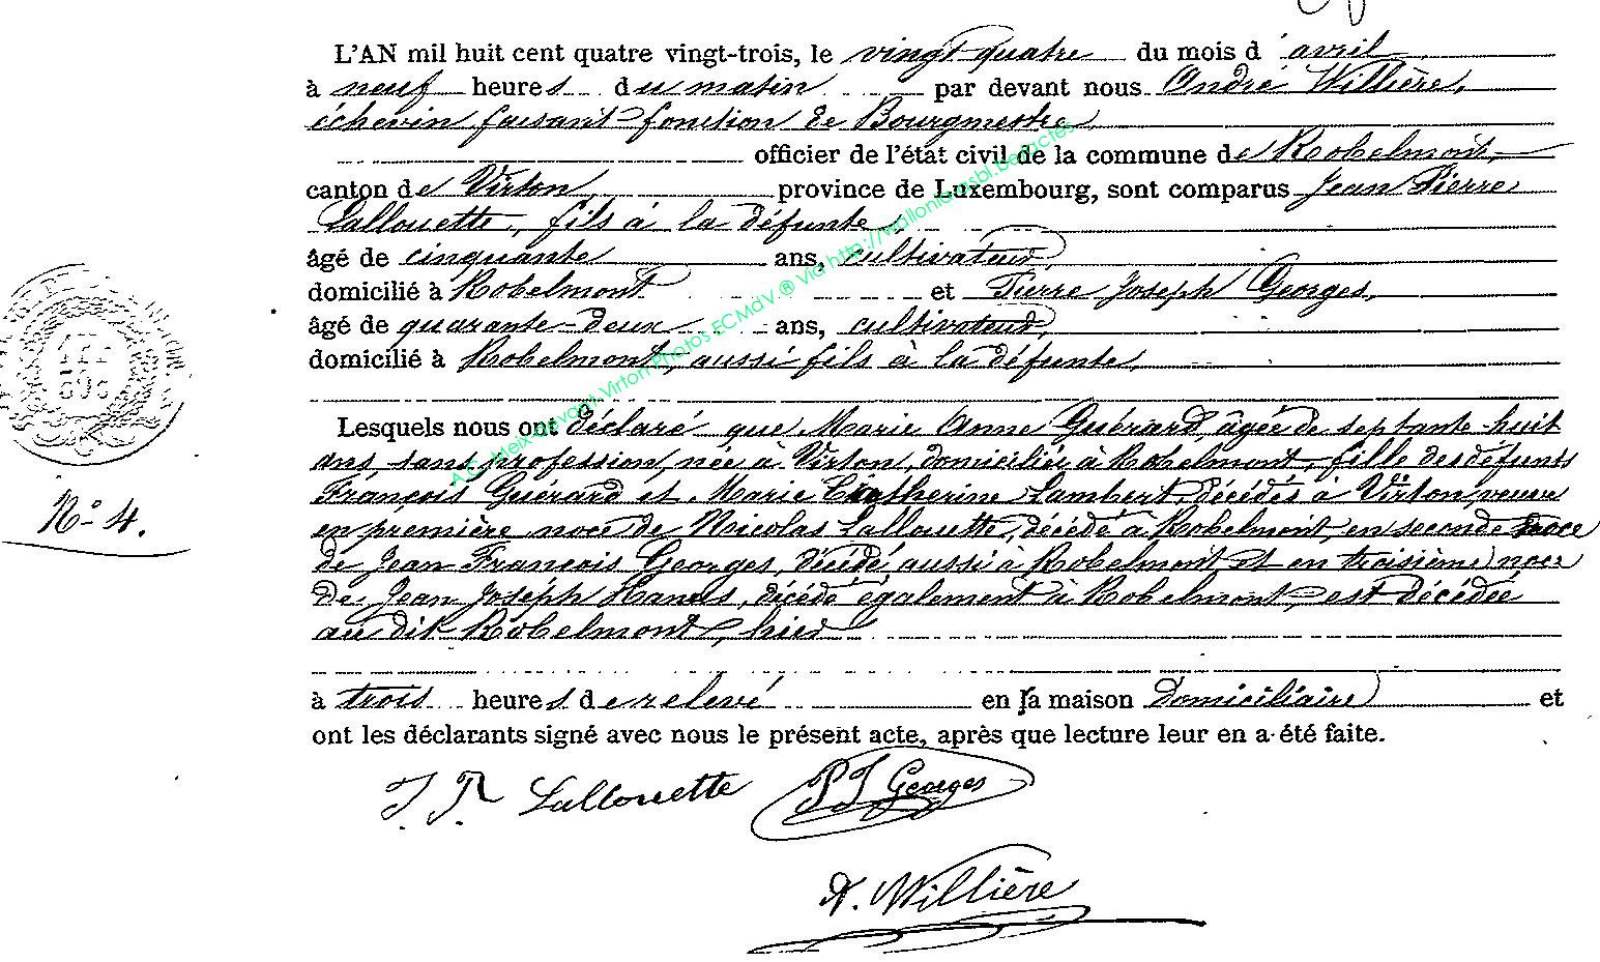 L'AN mil huit cent quatre vingt-trois, le vingt-quatre du mois d'avril
à neuf heures du matin par devant nous André Willière,
échevin faisant fonction de Bourgmestre,
officier de l'état civil de la commune de Robelmont,
canton de Virton, province de Luxembourg, sont comparus Jean Pierre
Lallouette, fils à la défunte,
âgé de cinquante ans, cultivateur,
domicilié à Robelmont et Pierre Joseph Georges,
âgé de quarante-deux ans, cultivateur,
domicilié à Robelmont, aussi fils à la défunte,
Lesquels nous ont déclaré que Marie Anne Guérard, âgée de septante huit
ans, sans profession, née à Virton, domiciliée à Robelmont, fille des défunts
François Guérard et Marie Catherine Lambert, décédés à Virton, veuve
en première noce de Nicolas Lallouette, décédé à Robelmont, en seconde noce
de Jean François Georges, décédé aussi à Robelmont et en troisième noce
de Jean Joseph, décédé également à Robelmont, est décédée
au dit Robelmont, hier
à trois heures de relevé en sa maison domiciliaire et
ont les déclarants signé avec nous le présent acte, après que lecture leur en a été faite.
N° 4.
J. P. Lallouette P J Georges
A. Willière
A.C. Meix-devant-Virton Photos ECMdV ® Via http://wallonia-asbl.be/actes